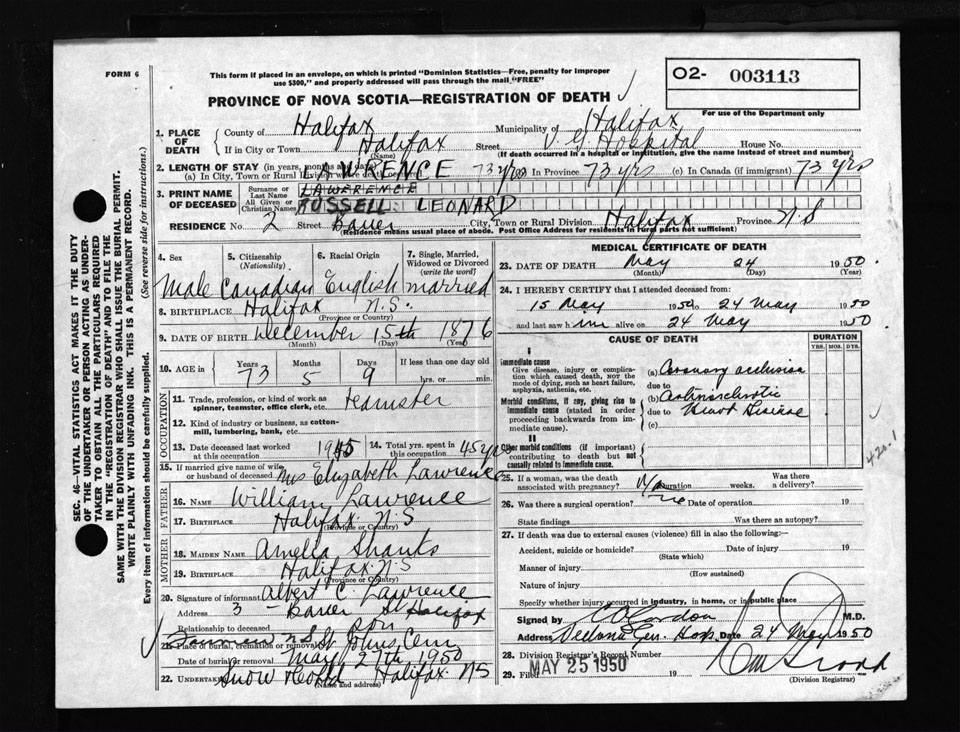 FORM 6
This form if placed in an envelope, on which is printed "Dominion Statistics—Free, penalty for improper
use $300," and properly addressed will pass through the mail "FREE"
O2- 003113
PROVINCE OF NOVA SCOTIA—REGISTRATION OF DEATH
For use of the Department only
1. PLACE OF DEATH
County of Halifax Municipality of Halifax
If in City or Town Halifax Street V. G. Hospital House No.
(Name) (If death occurred in a hospital or institution, give the name instead of street and number)
2. LENGTH OF STAY (in years, months and days)
(a) In City, Town or Rural Division where death 73 yrs In Province 73 yrs (c) In Canada (if immigrant) 73 yrs
LAWRENCE
3. PRINT NAME OF DECEASED
Surname or Last Name LAWERENCE
All Given or Christian Names RUSSELL LEONARD
RESIDENCE No. 2 Street Bauer City, Town or Rural Division Halifax Province N S
(Residence means usual place of abode. Post Office Address for residents of rural parts not sufficient)
4. Sex
5. Citizenship (Nationality)
6. Racial Origin
7. Single, Married, Widowed or Divorced (write the word)
Male Canadian English married
8. BIRTHPLACE Halifax N.S.
(Province or Country)
9. DATE OF BIRTH December 15th 1876
(Month) (Day) (Year)
10. AGE in Years Months Days If less than one day old
73 5 9 hrs. or min.
OCCUPATION
11. Trade, profession, or kind of work as
spinner, teamster, office clerk, etc. teamster
12. Kind of industry or business, as cotton-
mill, lumbering, bank, etc.
13. Date deceased last worked at this occupation 1945
14. Total yrs. spent in this occupation 45 yrs
15. If married give name of wife
or husband of deceased Mrs Elizabeth Lawrence
FATHER
16. NAME William Lawrence
17. BIRTHPLACE Halifax N.S
(Province or Country)
MOTHER
18. MAIDEN NAME Amelia Shanks
19. BIRTHPLACE Halifax N.S
(Province or Country)
20. Signature of informant Albert C. Lawrence
Address 3 - Bauer St Halifax
Relationship to deceased son
21. Place of burial, cremation or removal St Johns Cem
Date of burial or removal May 27th 1950
22. Undertaker Snow Halifax NS
(Name and address)
MEDICAL CERTIFICATE OF DEATH
23. DATE OF DEATH May 24 1950
(Month) (Day) (Year)
24. I HEREBY CERTIFY that I attended deceased from:
15 May 1950 to 24 May 1950
and last saw him alive on 24 May 1950
CAUSE OF DEATH
DURATION
YRS. MOS. DYS.
I
Immediate cause
Give disease, injury or complica-
tion which caused death, not the
mode of dying, such as heart failure,
asphyxia, asthenia, etc.
(a) Coronary occlusion
due to
Morbid conditions, if any, giving rise to
immediate cause (stated in order
proceeding backwards from im-
mediate cause).
(b) Arteriosclerotic
due to Heart Disease
(c)
II
Other morbid conditions (if important)
contributing to death but not
causally related to immediate cause.
420.1
25. If a woman, was the death
associated with pregnancy? Duration weeks. Was there a delivery?
26. Was there a surgical operation? Date of operation 19
State findings Was there an autopsy?
27. If death was due to external causes (violence) fill in also the following:
Accident, suicide or homicide? Date of injury 19
(State which)
Manner of injury
(How sustained)
Nature of injury
Specify whether injury occurred in industry, in home, or in public place
Signed by M.D.
Address Victoria Gen. Hosp. Date 24 May 1950
28. Division Registrar's Record Number
29. Filed MAY 25 1950 19
(Division Registrar)
SEC. 46—VITAL STATISTICS ACT MAKES IT THE DUTY
OF THE UNDERTAKER OR PERSON ACTING AS UNDER-
TAKER TO OBTAIN ALL THE PARTICULARS REQUIRED
IN THE "REGISTRATION OF DEATH" AND TO FILE THE
SAME WITH THE DIVISION REGISTRAR WHO SHALL ISSUE THE BURIAL PERMIT.
WRITE PLAINLY WITH UNFADING INK. THIS IS A PERMANENT RECORD.
Every item of information should be carefully supplied. (See reverse side for instructions.)